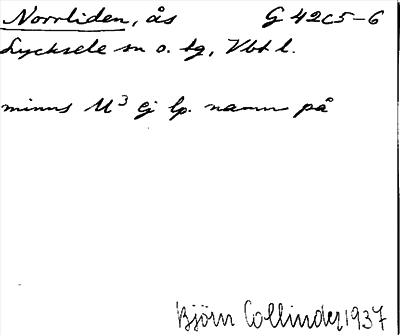 Norrliden, ås G 42c5-6
Lycksele sn o. tg, Vbt l.
minus M³ Ej lp. namn på
Björn Collinder 1937